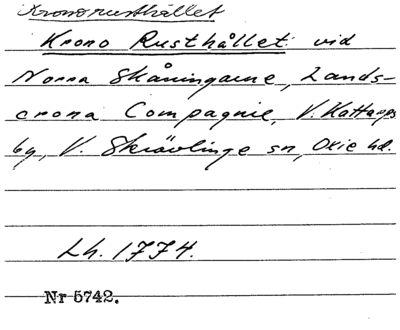 Kronorusthållet
Krono Rusthållet vid
Norra Skåningarne, Lands-
crona Compagnie, V. Kattarps
by, V. Skrävlinge sn, Oxie hd.
Lh. 1774.
Nr 5742.